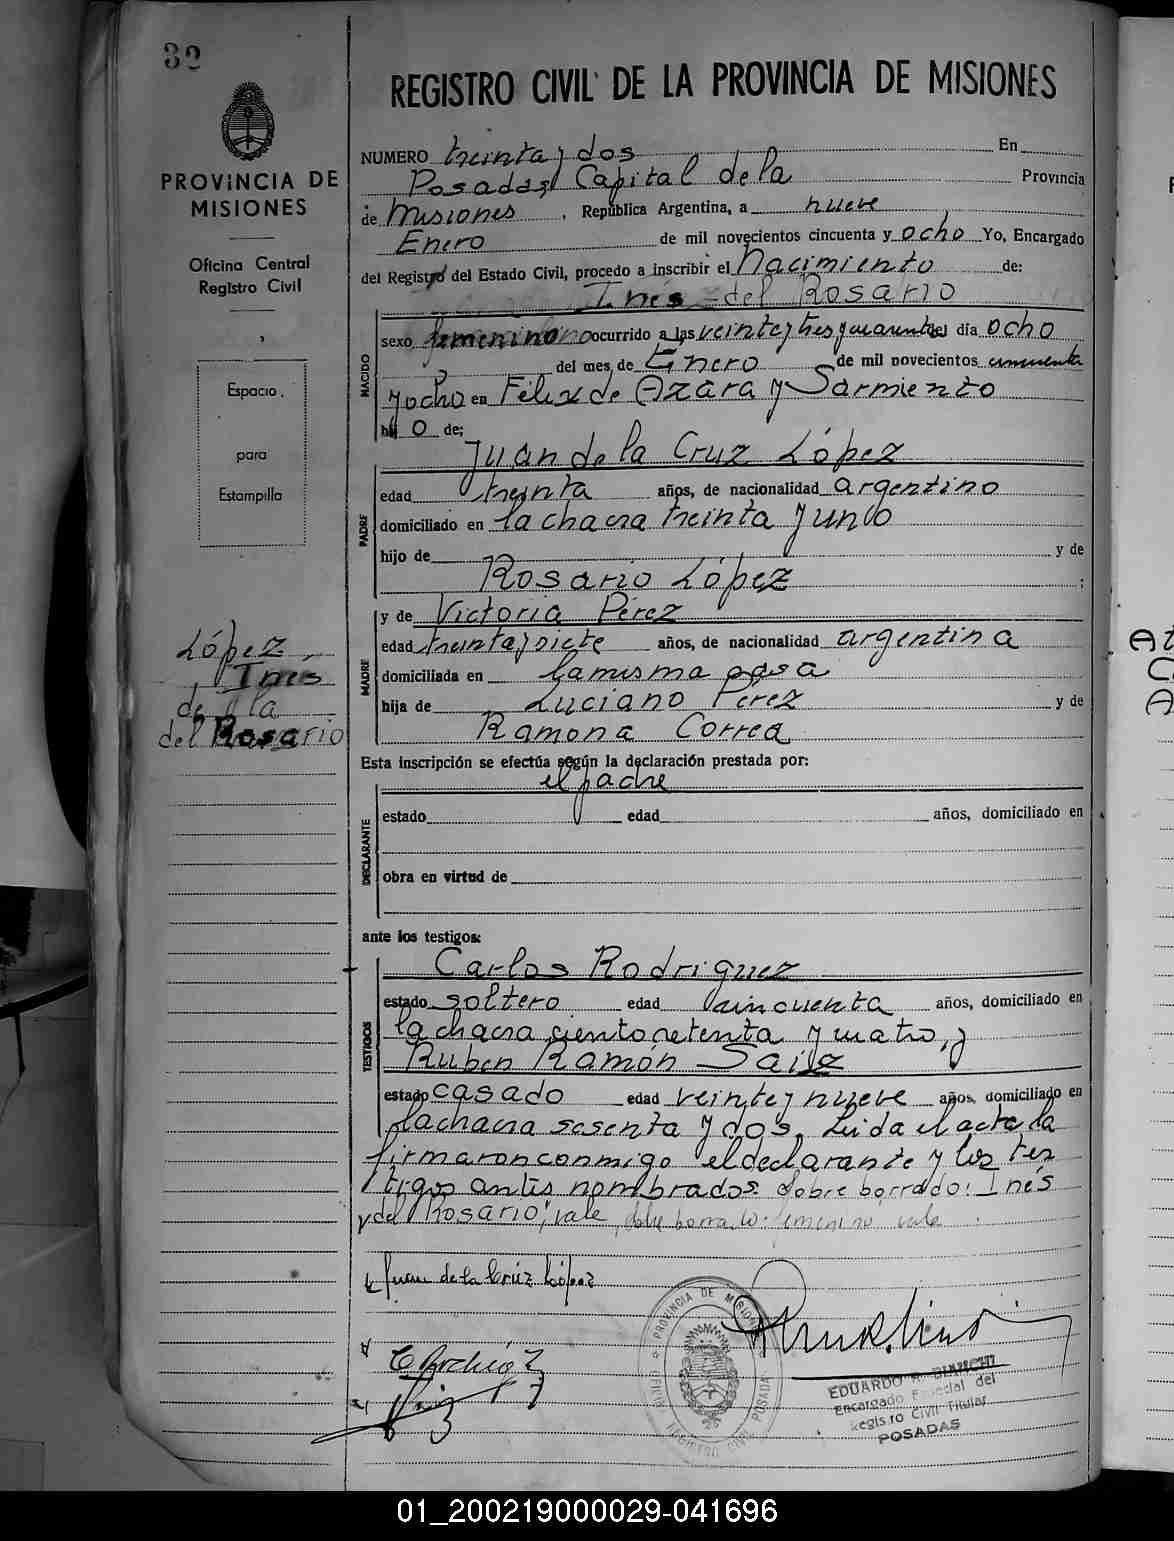 32
REGISTRO CIVIL DE LA PROVINCIA DE MISIONES
PROVINCIA DE
MISIONES
Oficina Central
Registro Civil
Espacio
para
Estampilla
López,
Inés
de la
del Rosario
NUMERO treinta y dos En
Posadas, Capital de la Provincia
de Misiones, República Argentina, a nueve
Enero de mil novecientos cincuenta y ocho Yo, Encargado
del Registro del Estado Civil, procedo a inscribir el Nacimiento de:
Inés del Rosario
NACIDO
sexo femenino ocurrido a las veinte y tres y cuarenta del día ocho
del mes de Enero de mil novecientos cincuenta
y ocho en Félix de Azara y Sarmiento
hij o de:
Juan de la Cruz López
PADRE
edad treinta años, de nacionalidad argentino
domiciliado en la chacra treinta y uno
hijo de y de
Rosario López ;
y de Victoria Pérez
MADRE
edad treinta y siete años, de nacionalidad argentina
domiciliada en la misma casa
hija de Luciano Pérez y de
Ramona Correa
Esta inscripción se efectúa según la declaración prestada por:
el padre
DECLARANTE
estado edad años, domiciliado en
obra en virtud de
ante los testigos:
Carlos Rodriguez
TESTIGOS
estado soltero edad cincuenta años, domiciliado en
la chacra ciento setenta y cuatro, y
Ruben Ramón Saiz
estado casado edad veinte y nueve años, domiciliado en
la chacra sesenta y dos. Leida el acta la
firmaron conmigo el declarante y los tes
tigos antes nombrados. Sobre borrado: Inés
y del Rosario, vale, sobre borrado: femenino vale
Juan de la Cruz López
PROVINCIA DE MISIONES
REGISTRO CIVIL
POSADAS
EDUARDO R. BIANCHI
Encargado Especial del
Registro Civil Titular
POSADAS
01_200219000029-041696